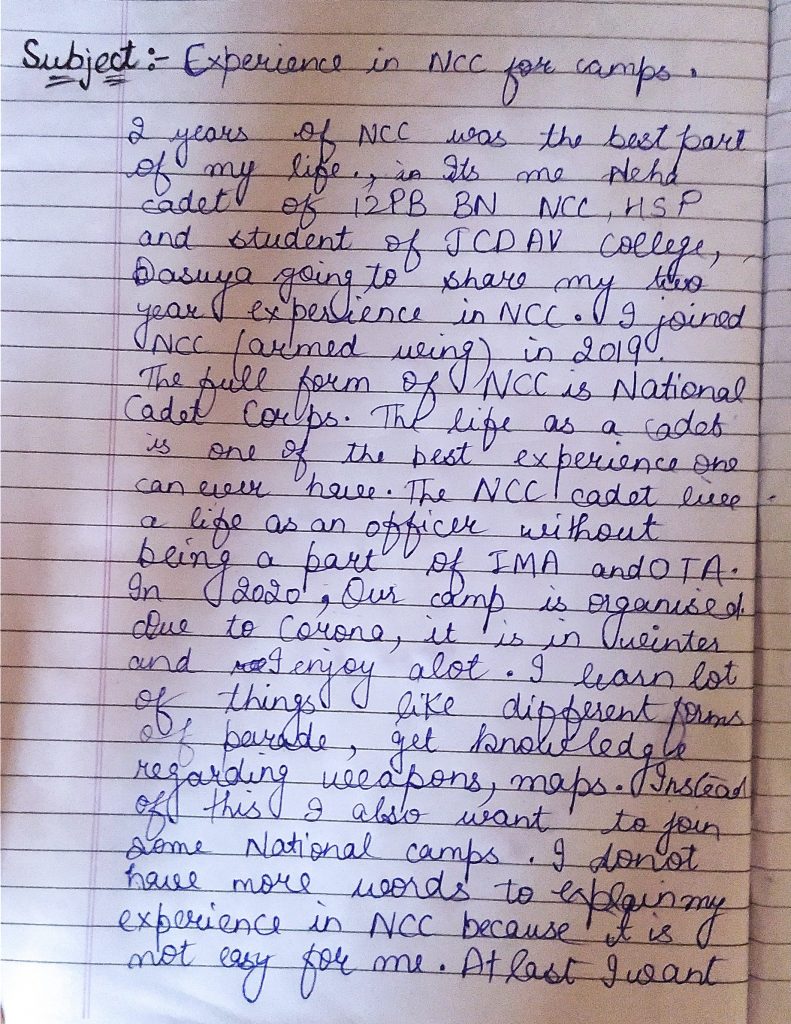 Subject :- Experience in NCC for camps.
2 years of NCC was the best part
of my life., in Its me Neha
cadet of 12PB BN NCC, HSP
and student of JCDAV College,
Dasuya going to share my two
year experience in NCC. I joined
NCC (armed wing) in 2019.
The full form of NCC is National
Cadet Corps. The life as a cadet
is one of the best experience one
can ever have. The NCC cadet live
a life as an officer without
being a part of IMA and OTA.
In 2020, Our camp is organised.
due to Corona, it is in winter
and I enjoy alot. I learn lot
of things like different forms
of parade, get knowledge
regarding weapons, maps. Instead
of this I also want to join
some National camps. I donot
have more words to explain my
experience in NCC because it is
not easy for me. At last I want